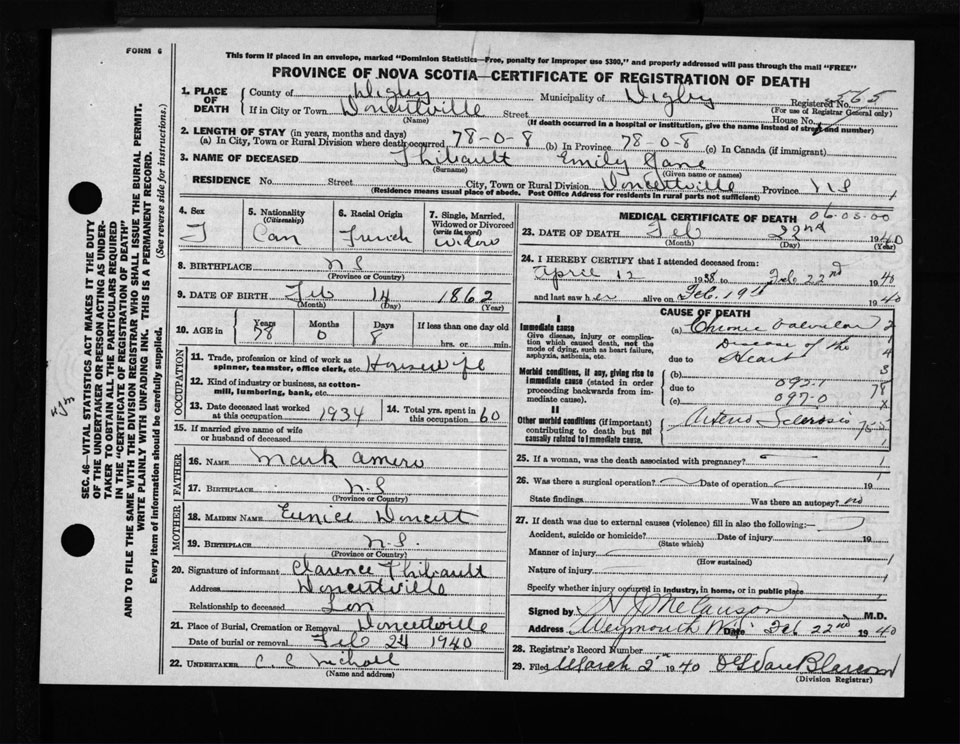 FORM 6
This form if placed in an envelope, marked "Dominion Statistics—Free, penalty for improper use $300," and properly addressed will pass through the mail "FREE"
PROVINCE OF NOVA SCOTIA—CERTIFICATE OF REGISTRATION OF DEATH
SEC. 46—VITAL STATISTICS ACT MAKES IT THE DUTY
OF THE UNDERTAKER OR PERSON ACTING AS UNDER-
TAKER TO OBTAIN ALL THE PARTICULARS REQUIRED
IN THE "CERTIFICATE OF REGISTRATION OF DEATH"
AND TO FILE THE SAME WITH THE DIVISION REGISTRAR WHO SHALL ISSUE THE BURIAL PERMIT.
WRITE PLAINLY WITH UNFADING INK. THIS IS A PERMANENT RECORD.
Every item of information should be carefully supplied. (See reverse side for instructions.)
1. PLACE OF DEATH County of Digby Municipality of Digby Registered No. 565
(For use of Registrar General only)
If in City or Town Doucetville Street House No.
(Name) (If death occurred in a hospital or institution, give the name instead of street and number)
2. LENGTH OF STAY (in years, months and days)
(a) In City, Town or Rural Division where death occurred 78-0-8 (b) In Province 78-0-8 (c) In Canada (if immigrant)
3. NAME OF DECEASED Thibault Emily Jane
(Surname) (Given name or names)
RESIDENCE No. Street City, Town or Rural Division Doucettville Province N S
(Residence means usual place of abode. Post Office Address for residents in rural parts not sufficient)
4. Sex F
5. Nationality (Citizenship) Can
6. Racial Origin French
7. Single, Married, Widowed or Divorced (write the word) Widow
8. BIRTHPLACE N S
(Province or Country)
9. DATE OF BIRTH Feb 14 1862
(Month) (Day) (Year)
10. AGE in Years 78 Months 0 Days 8 If less than one day old hrs. or min.
OCCUPATION
11. Trade, profession or kind of work as spinner, teamster, office clerk, etc. Housewife
12. Kind of industry or business, as cotton-mill, lumbering, bank, etc.
13. Date deceased last worked at this occupation 1934 14. Total yrs. spent in this occupation 60
15. If married give name of wife or husband of deceased
FATHER
16. NAME Mark Amero
17. BIRTHPLACE N.S
(Province or Country)
MOTHER
18. MAIDEN NAME Eunice Doucett
19. BIRTHPLACE N.S.
(Province or Country)
20. Signature of informant Clarence Thibault
Address Doucetville
Relationship to deceased Son
21. Place of Burial, Cremation or Removal Doucetville
Date of burial or removal Feb 24 1940
22. UNDERTAKER C. C. Nicholl
(Name and address)
MEDICAL CERTIFICATE OF DEATH 06-05-00
23. DATE OF DEATH Feb 22nd 1940
(Month) (Day) (Year)
24. I HEREBY CERTIFY that I attended deceased from:
April 12 1938 to Feb 22nd 1940
and last saw her alive on Feb. 19th 1940
CAUSE OF DEATH
I
Immediate cause
Give disease, injury or complication which caused death, not the mode of dying, such as heart failure, asphyxia, asthenia, etc.
(a) Chronic Valvular
Disease of the
due to Heart
Morbid conditions, if any, giving rise to immediate cause (stated in order proceeding backwards from immediate cause).
(b)
due to 092-1
(c) 097-0
II
Other morbid conditions (if important) contributing to death but not causally related to immediate cause.
Arterio Sclerosis
25. If a woman, was the death associated with pregnancy?
26. Was there a surgical operation? Date of operation 19
State findings Was there an autopsy? no
27. If death was due to external causes (violence) fill in also the following:—
Accident, suicide or homicide? Date of injury 19
(State which)
Manner of injury
(How sustained)
Nature of injury
Specify whether injury occurred in industry, in home, or in public place
Signed by M.D.
Address Weymouth Date Feb 22nd 1940
28. Registrar's Record Number
29. Filed March 2nd 1940
(Division Registrar)